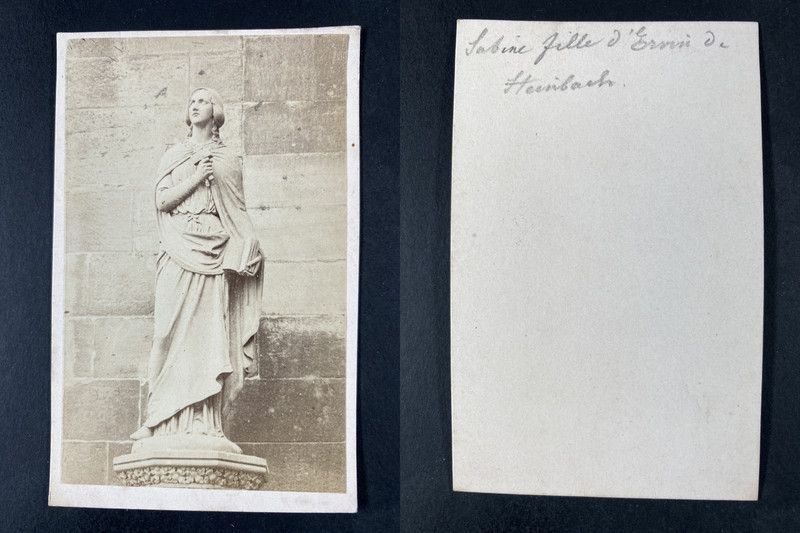 Sabine fille d'Ervin de
Steinbach.